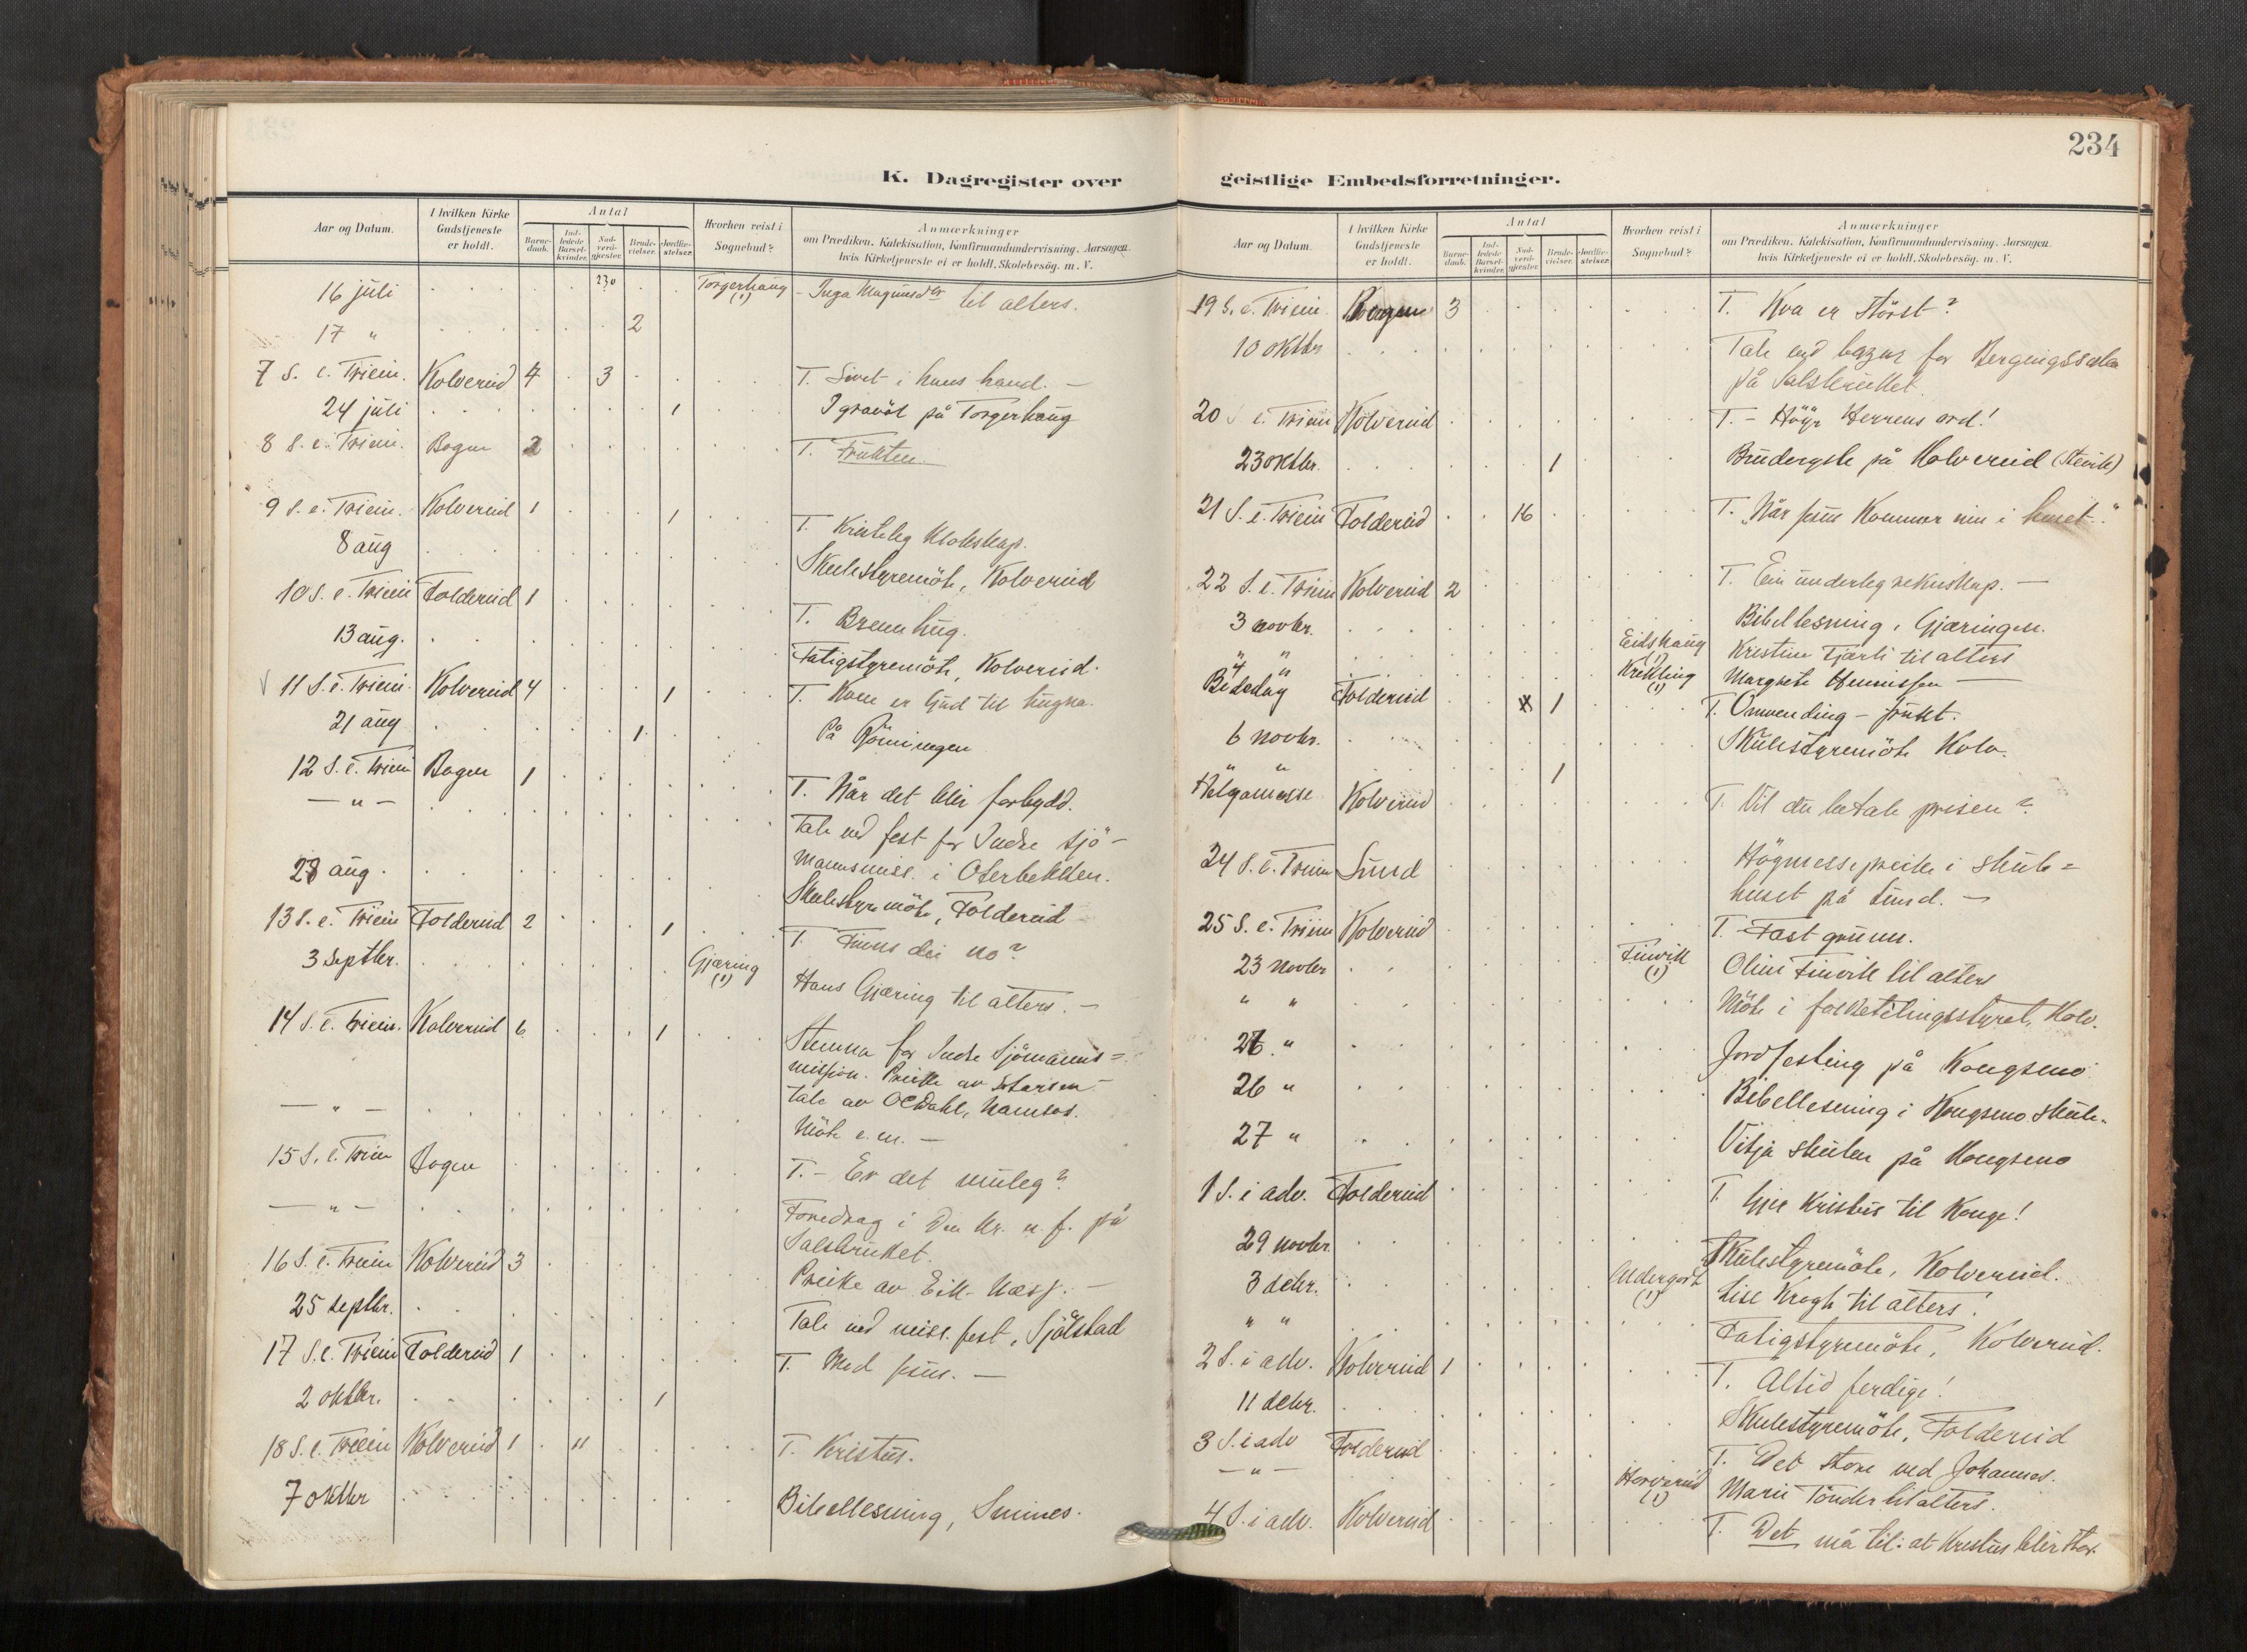 234
K. Dagregister over
geistlige Embedsforretninger.
Aar og Datum.
I hvilken Kirke Gudstjeneste er holdt.
Antal
Barne-daab.
Ind-ledede Barsel-kvinder.
Nad-verd-gjester.
Brude-vielser.
Jordfæ-stelser.
Hvorhen reist i Sognebud?
Anmærkninger
om Prædiken. Katekisation, Konfirmandundervisning. Aarsagen.
hvis Kirketjeneste ei er holdt. Skolebesøg. m. V.
16 juli 230 Torgerhaug (1) - Inga Magnusdtr til alters.
17 " 2
7 S. e. Trien. Kolvereid 4 3 T. Livet i hans hand. -
24 juli 1 I gravöl på Torgerhaug
8 S. e. Trien. Bogen 2 T. Frukten.
9 S. e. Trien. Kolvereid 1 1 T. Kristeleg klokskap.
8 aug Skulestyremöte, Kolvereid
10 S. e. Trien Foldereid 1 T. Brennhug.
13 aug. Fatigstyremöte, Kolvereid.
V 11 S. e. Trien. Kolvereid 4 1 T. Kven er Gud til hugna.
21 aug 1 På Römingen
12 S. e. Trien Bogen 1 T. Når det blir forbydd.
- " - Tale ved fest for Indre sjö-
mannsmiss. i Oterbekken.
28 aug. Skulestyremöte, Foldereid
13 S. e. Trien Foldereid 2 1 T. Finns dei no?
3 septbr. Gjæring (1) Hans Gjæring til alters. -
14 S. e. Trien. Kolvereid 6 1 Stemna for Indre Sjömanns=
mission. Preike av
- " - tale av Dahl, Namsos.
Möte e.m. -
15 S. e. Trien Bogen T. - Er det muleg?
- " - Foredrag i Den kr. u. f. på
Salsbruket.
16 S. e. Trien Kolvereid 3 Preike av Eik-Næss. -
25 septbr. Tale ved miss. fest, Sjölstad
17 S. e. Trien Foldereid 1 T. Med Jesus. -
2 oktbr. 1
18 S. e. Trien Kolvereid 1 11 T. Kristus.
7 oktbr Bibellesning, Simnes.
Aar og Datum.
I hvilken Kirke Gudstjeneste er holdt.
Antal
Barne-daab.
Ind-ledede Barsel-kvinder.
Nad-verd-gjester.
Brude-vielser.
Jordfæ-stelser.
Hvorhen reist i Sognebud?
Anmærkninger
om Prædiken. Katekisation, Konfirmandundervisning. Aarsagen.
hvis Kirketjeneste ei er holdt. Skolebesøg. m. V.
19 S. e. Trien. Bogen 3 T. Kva er störst?
10 oktbr Tale ved bazar for Bergingssaka
på Salsbruket.
20 S e. Trien Kolvereid T. - Höyr Herrens ord!
23 oktbr. 1 Brudevigsle på Kolvereid
21 S. e. Trien Foldereid 16 T. "Når Jesus kommer inn i huset."
22 S. e. Trien Kolvereid 2 T. Ein underleg rekneskap. -
3 novbr. Bibellesning, Gjæringen.
" " Eidshaug (1) Kristine Fjærli til alters
4 " Krekling (1) Margrete Hennissen -
Bededag Foldereid 1 T. Omvending - frukt.
6 novbr. Skulestyremöte Kolv.
" " 1
Helgamesse Kolvereid T. Vil du betale prisen?
24 S. e. Trien Lund Högmessepreike i skule=
huset på Lund. -
25 S. e. Trien Kolvereid T. - Fast grunn.
23 novbr Finvik (1) Oline Finvik til alters
" " Möte i folketelingsstyret, Kolv.
26 " Jordfesting på Kongsmo
26 " Bibellesning i Kongsmo skule.
27 " Vitja skulen på Kongsmo
1 S. i adv. Foldereid T. Gjer Kristus til Konge!
29 novbr. Skulestyremöte, Kolvereid.
3 debr. (1) Lise Krogh til alters.
" " Fatigstyremöte, Kolvereid.
2 S. i adv. Kolvereid 1 T. Altid ferdige!
11 debr. Skulestyremöte, Foldereid
3 S. i adv Foldereid T. Det store ved Johannes.
- " - (1) Marie Tönder til alters.
4 S. i adv. Kolvereid T. Det må til: at Kristus blir stor.